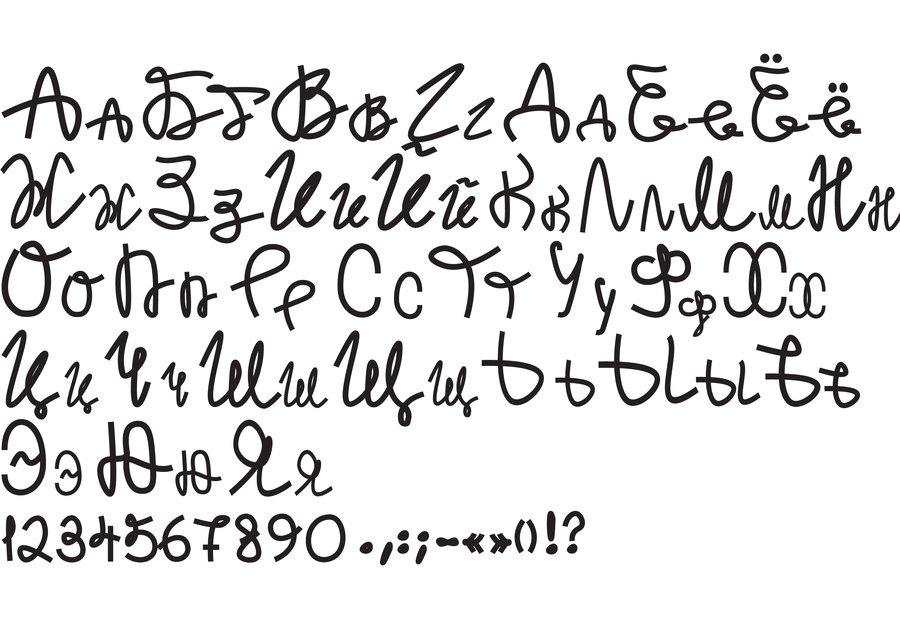 АаБбВвГгДдЕеЁё
ЖжЗзИиЙйКкЛлМмНн
ОоПпРрСсТтУуФфХх
ЦцЧчШшЩщЬьЫыЪъ
ЭэЮюЯя
1234567890.,:;-«»()!?